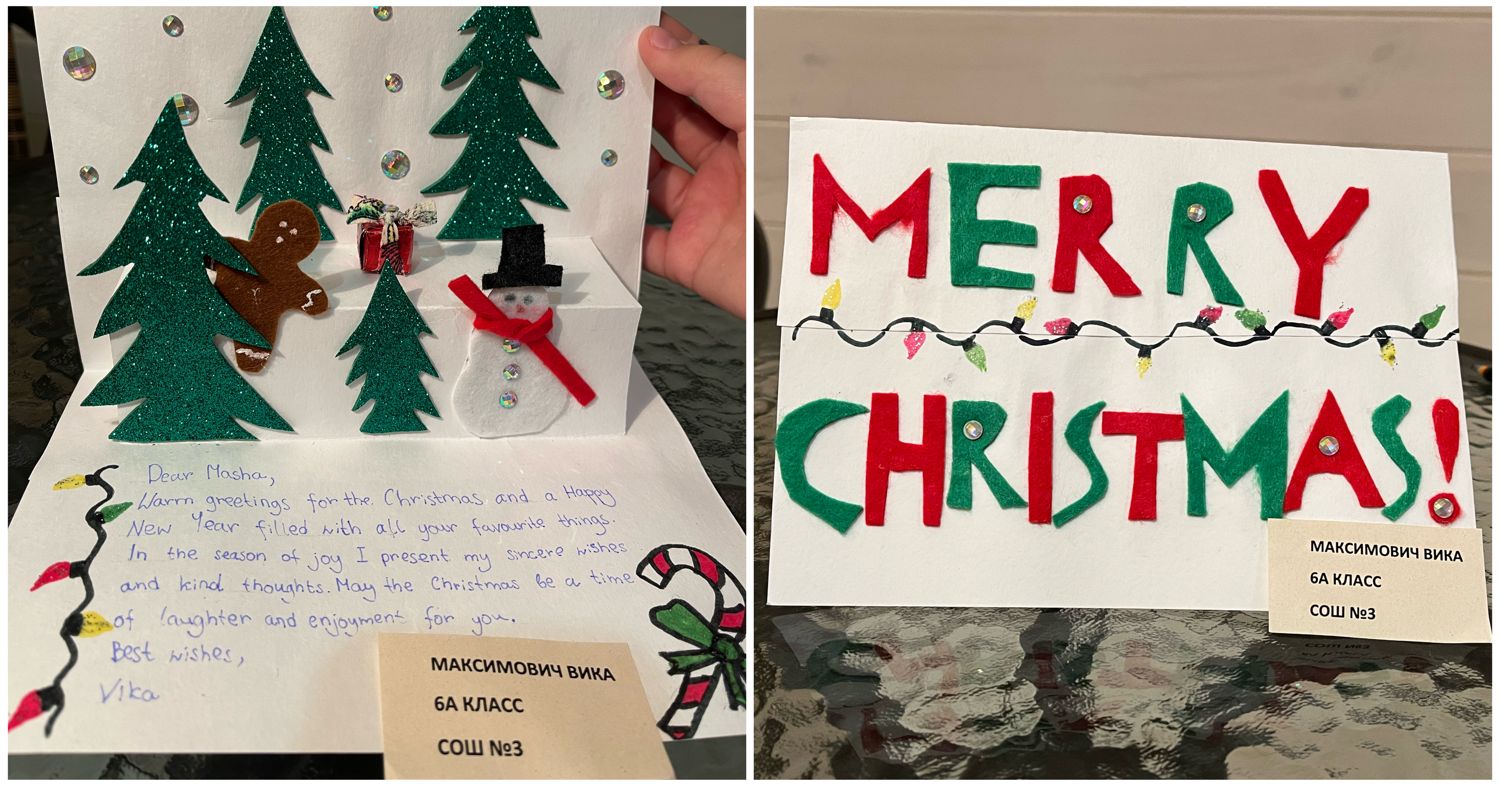 Dear Masha,
Warm greetings for the Christmas and a Happy
New Year filled with all your favourite things.
In the season of joy I present my sincere wishes
and kind thoughts. May the Christmas be a time
of laughter and enjoyment for you.
Best wishes,
Vika
МАКСИМОВИЧ ВИКА
6А КЛАСС
СОШ №3
MERRY
CHRISTMAS!
МАКСИМОВИЧ ВИКА
6А КЛАСС
СОШ №3